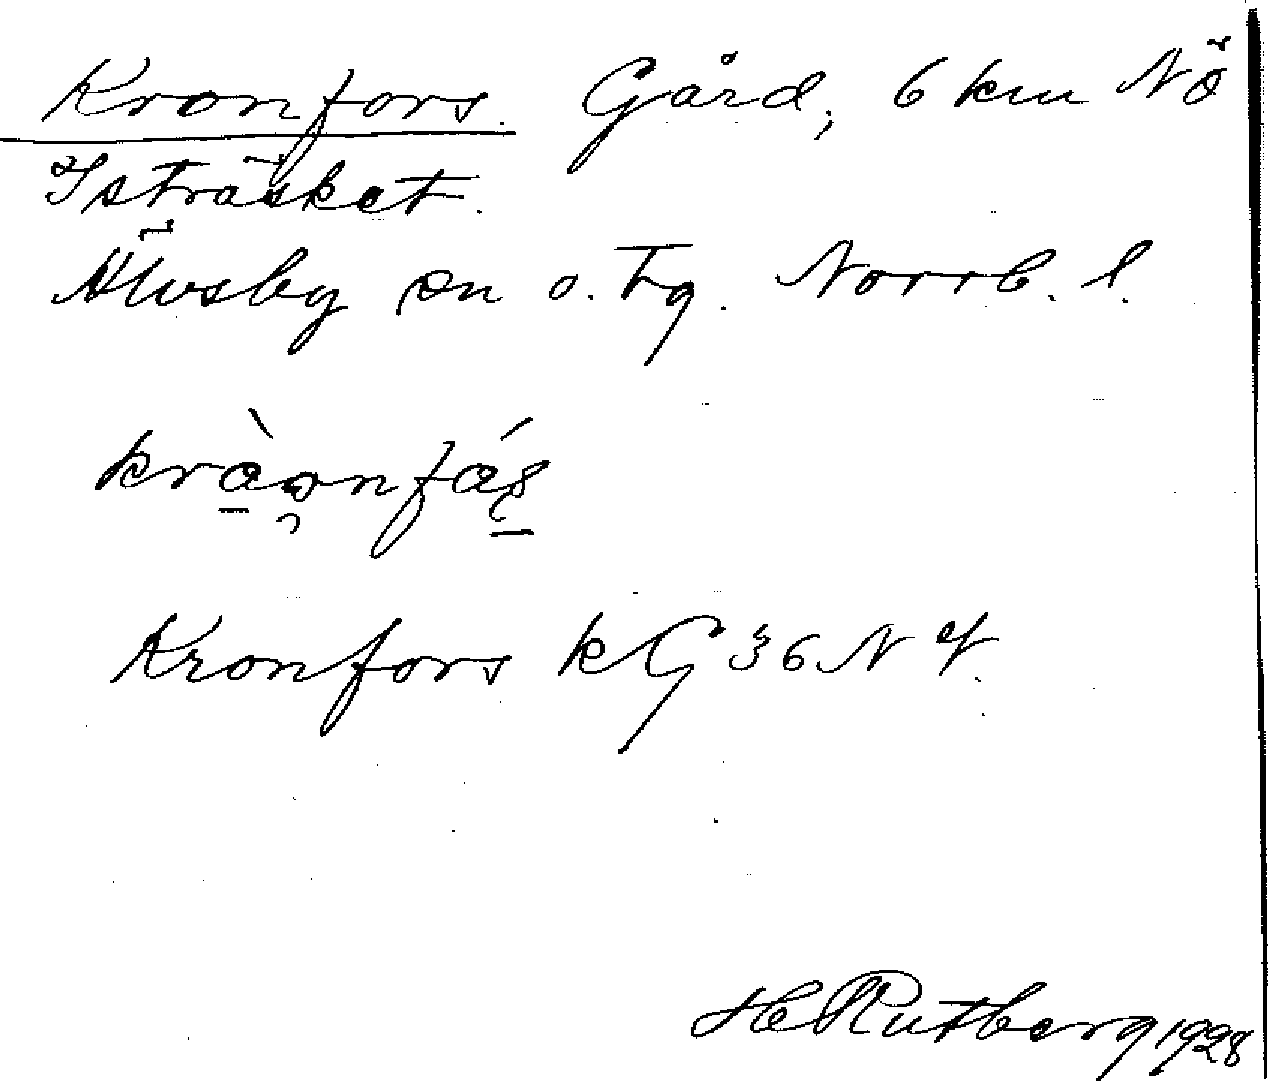 Kronfors. Gård, 6 km NÖ
Isträsket.
Älvsby sn o. tg. Norrb. l.
kràọnfás̱
Kronfors kG 36 NV.
H Rutberg 1928